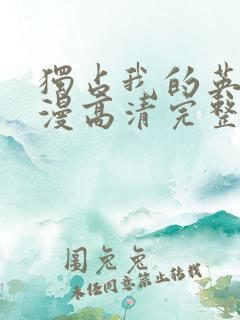 獨占我的英
漫高清完整
圖兔兔
未任同意禁止转载